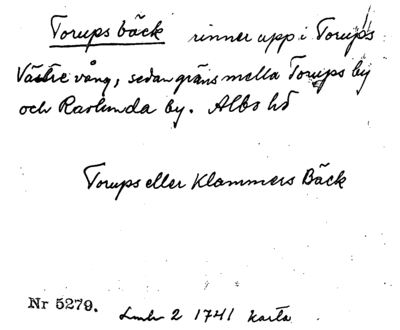 Torups bäck rinner upp i Torups
Västre vång, sedan gräns mella Torups by
och Ravlunda by. Albo hd
Torups eller Klammers Bäck
Nr 5279.
Lmhr 2 1741 karta